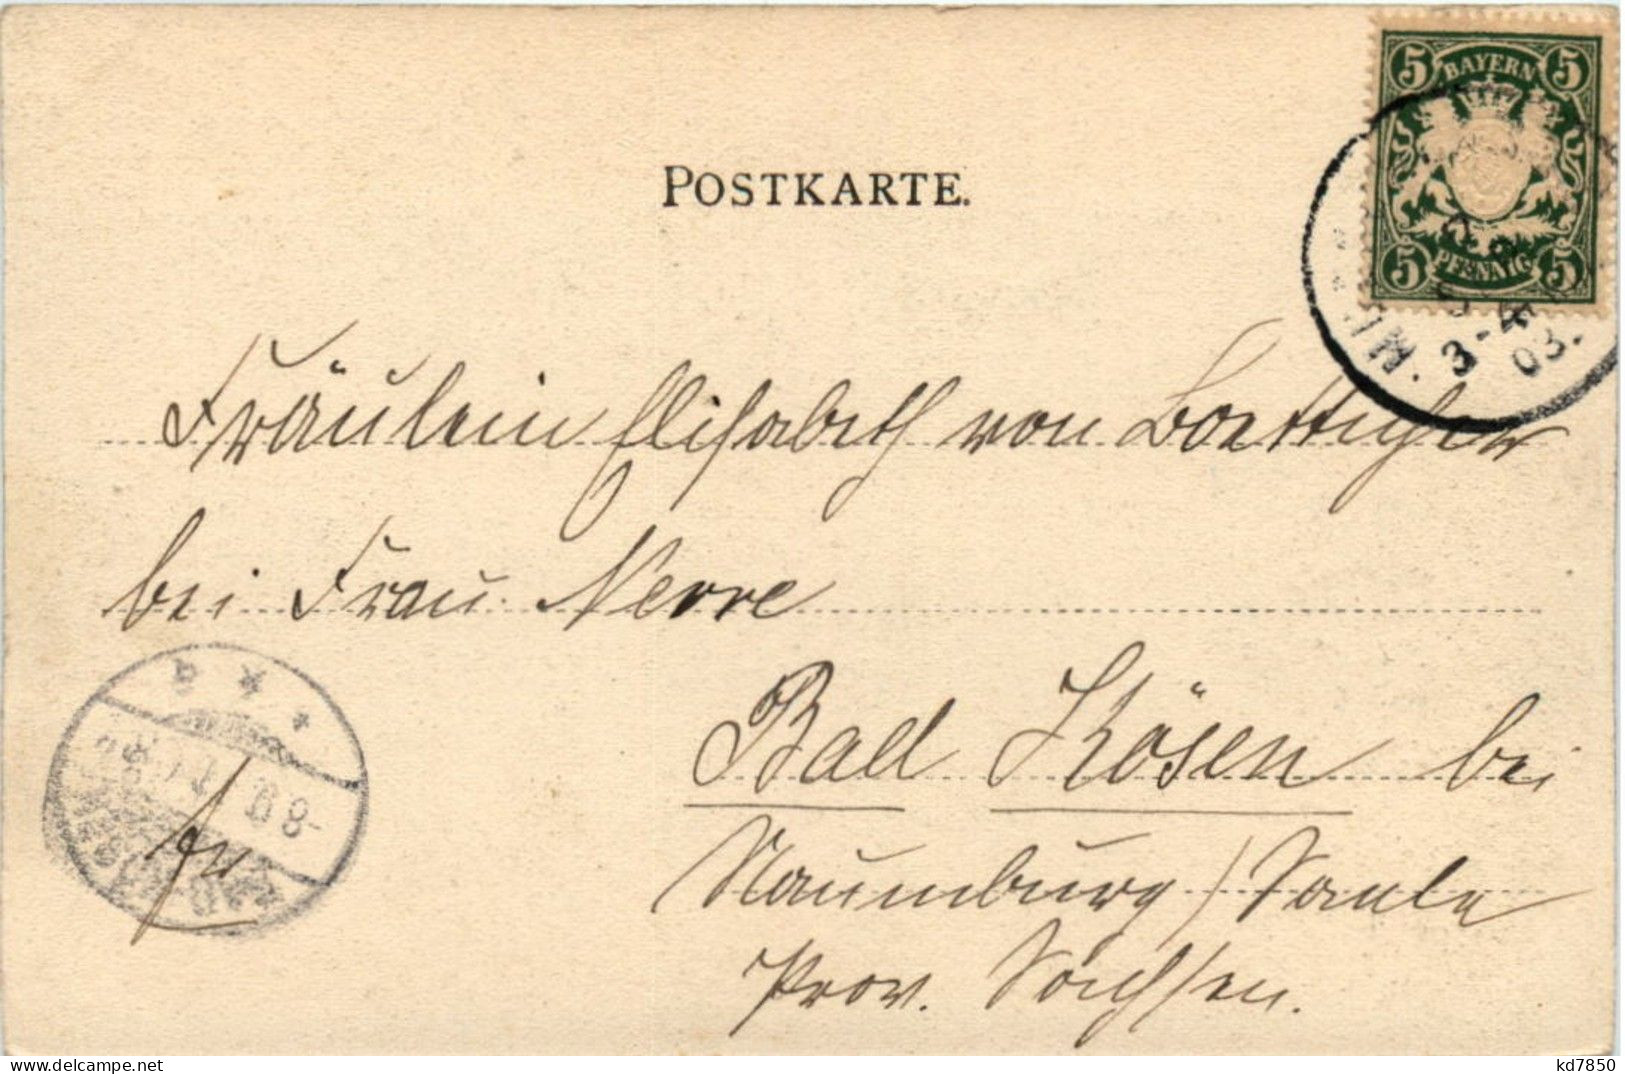 5 BAYERN 5
5 PFENNIG 5
POSTKARTE.
3-4
03.
Fräulein Elisabeth von Boetticher
bei Frau Nerre
Bad Kösen bei
Naumburg / Saale
Prov. Sachsen.
8-
delcampe.net
kd7850